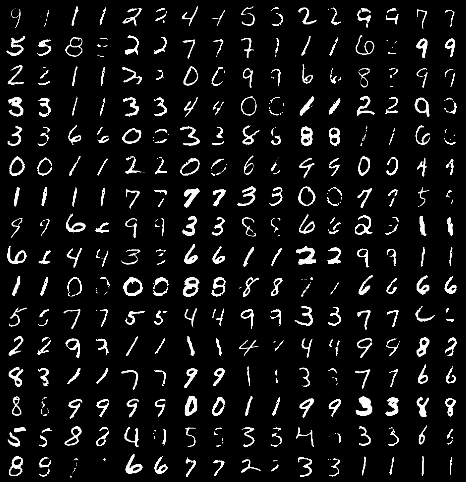 9 1 1 1 2 2 4 4 5 5 2 2 9 9 7 7
5 5 8 2 2 7 7 7 1 1 1 6 9 9
2 2 1 1 2 2 0 0 9 9 6 6 8 9 9
3 3 1 1 3 3 4 4 0 0 1 1 2 2 9 0
3 3 6 6 0 0 3 3 8 8 8 8 1 1 6
0 0 1 1 2 2 0 0 6 6 9 9 0 0 4 4
1 1 1 1 7 7 7 7 3 3 0 0 7 7 5 5
9 9 6 9 9 3 3 8 8 6 6 2 1 1
6 4 4 3 3 6 6 1 1 2 2 9 9 1 1
1 1 0 0 0 0 8 8 8 8 7 6 6 6 6
5 5 7 7 5 5 4 4 9 9 3 3 7 7 6
2 2 9 7 1 1 1 1 4 4 4 9 9 8 8
8 3 1 1 7 7 9 9 1 1 3 3 7 7 6 6
8 8 9 9 9 9 0 0 1 1 9 9 3 3 8 8
5 5 8 8 4 5 5 3 3 4 3 3 6 6
8 9 6 6 7 7 2 2 3 3 1 1 1 1